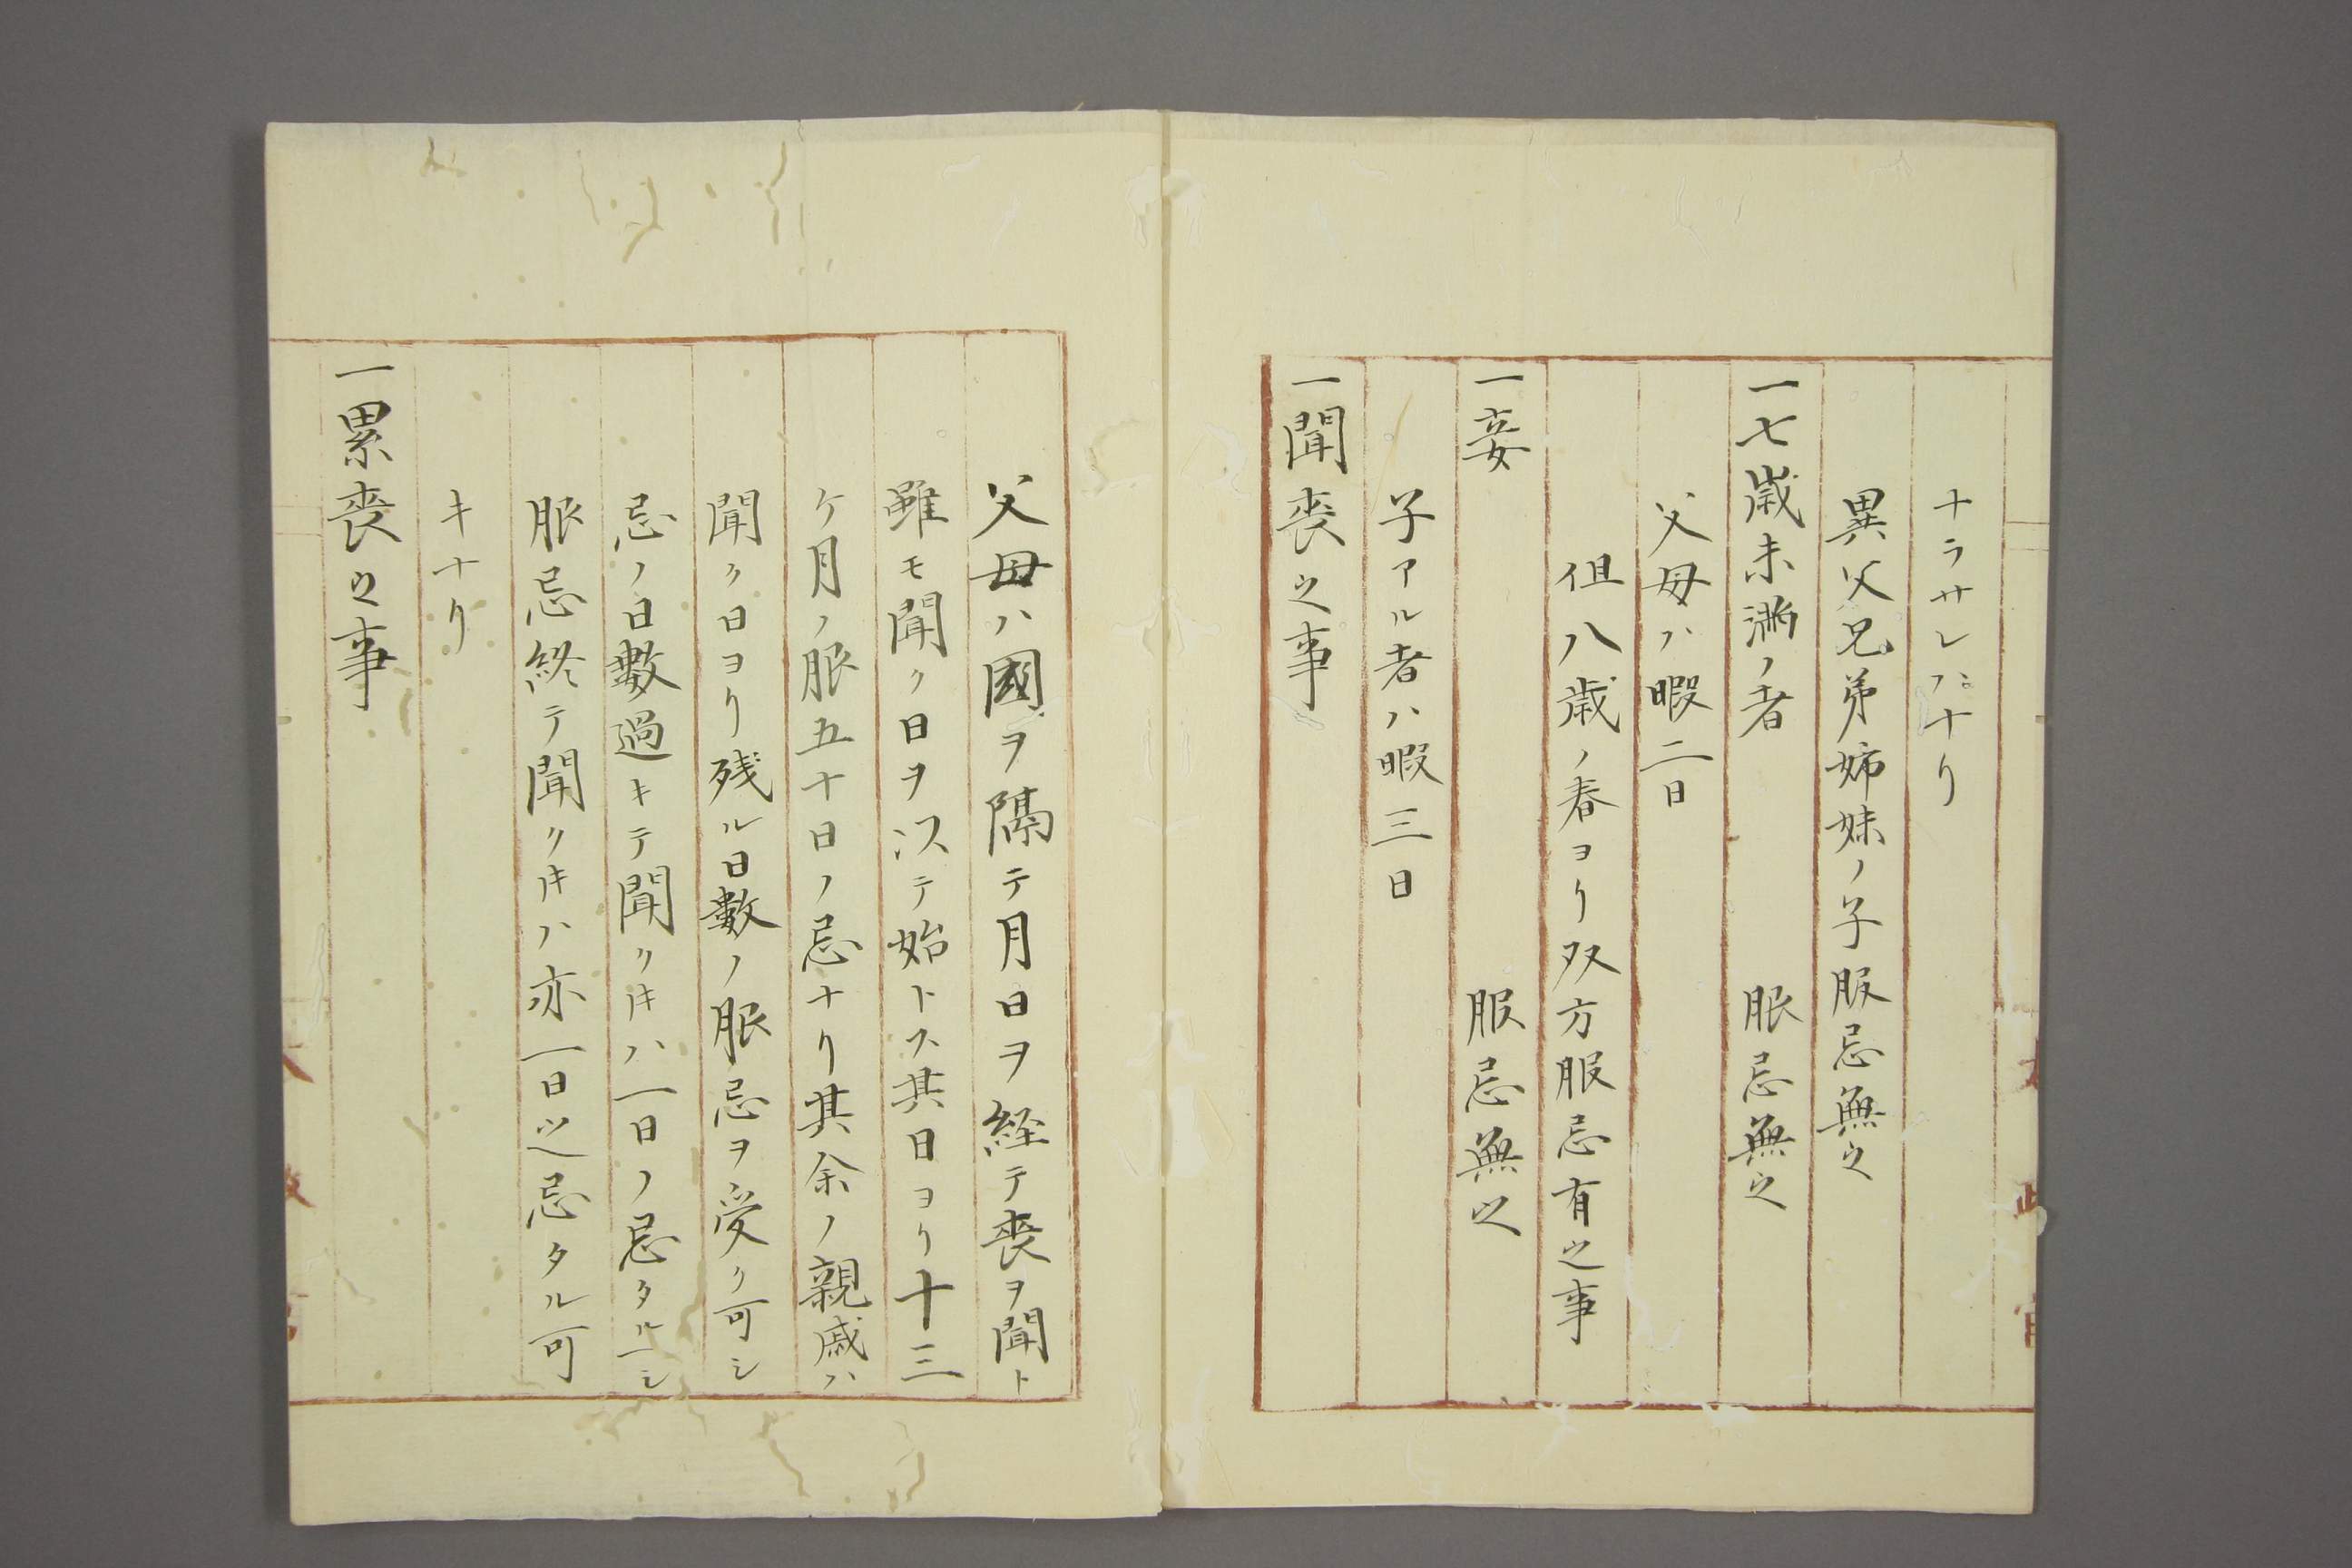 ナラサレバナリ
異父兄弟姉妹ノ子服忌無之
一七歳未満ノ者　服忌無之
父母ハ暇二日
但八歳ノ春ヨリ双方服忌有之事
一妾　服忌無之
子アル者ハ暇三日
一聞喪之事
父母ハ國ヲ隔テ月日ヲ経テ喪ヲ聞ト
雖モ聞ク日ヲ以テ始トス其日ヨリ十三
ケ月ノ服五十日ノ忌ナリ其余ノ親戚ハ
聞ク日ヨリ残ル日數ノ服忌ヲ受ク可シ
忌ノ日數過キテ聞クキハ一日ノ忌タルヘシ
服忌終テ聞クキハ亦一日之忌タル可
キナリ
一累喪之事